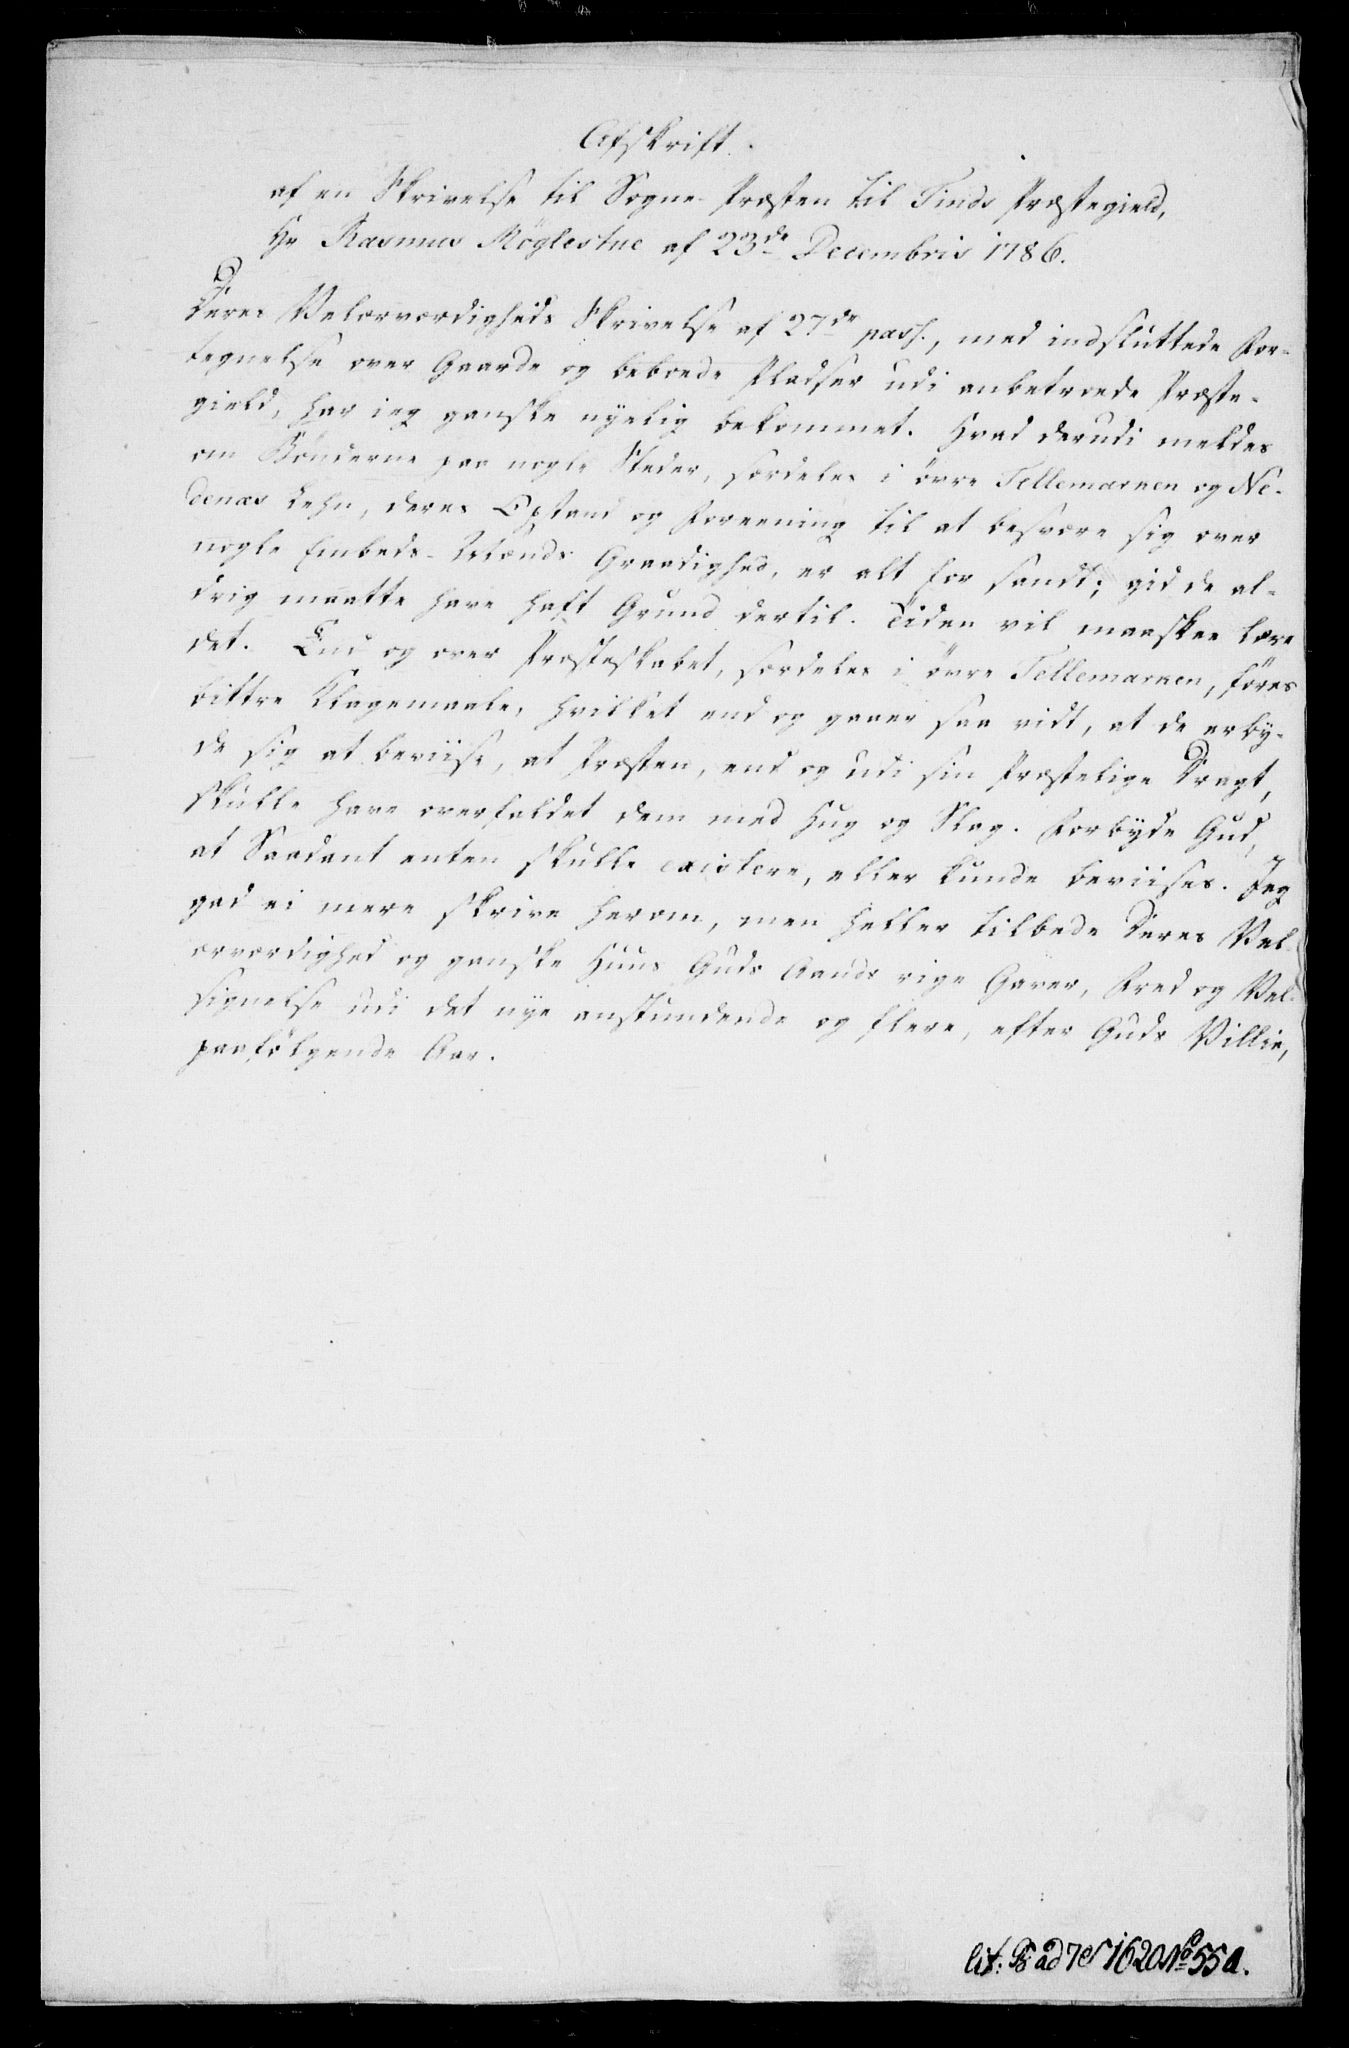 Afskrift.
af en Skrivelse til Sogne-Præsten til Tinds Præstegield,
Hr Rasmus Möglestue af 23de Decembris 1786.
Deres Velærværdigheds Skrivelse af 27de pass., med indsluttede For-
tegnelse over Gaarde og beboede Pladser udi anbetroede Præste-
gield, har ieg ganske nyelig bekommet. Hvad derudi meldes
om Bönderne paa nogle Steder, særdeles i övre Tellemarken og Ne-
denæs Lehn, deres Opstand og Foreening til at besvære sig over
nogle Embeds-Mænds Graadighed, er alt for sandt; gid de al-
drig maatte have haft Grund dertil. Tiden vil maaskee lære
det. End og over Præsteskabet, særdeles i övre Tellemarken, föres
bittre Klagemaale, hvilket end og gaaer saa vidt, at de erby-
de sig at beviise, at Præsten, end og udi sin Præstelige Dragt,
skulle have overfaldet dem med Hug og Slag. Forbyde Gud,
at Saadant enten skulle existere, eller kunde beviises. Jeg
gad ei mere skrive herom, men heller tilbede Deres Vel-
ærværdighed og ganske Huus Guds Aands rige Gaver, Fred og Vel-
signelse udi det nye anstundende og flere, efter Guds Villie,
paafölgende Aar.
lit: B ad 7 1620 No 55 a.